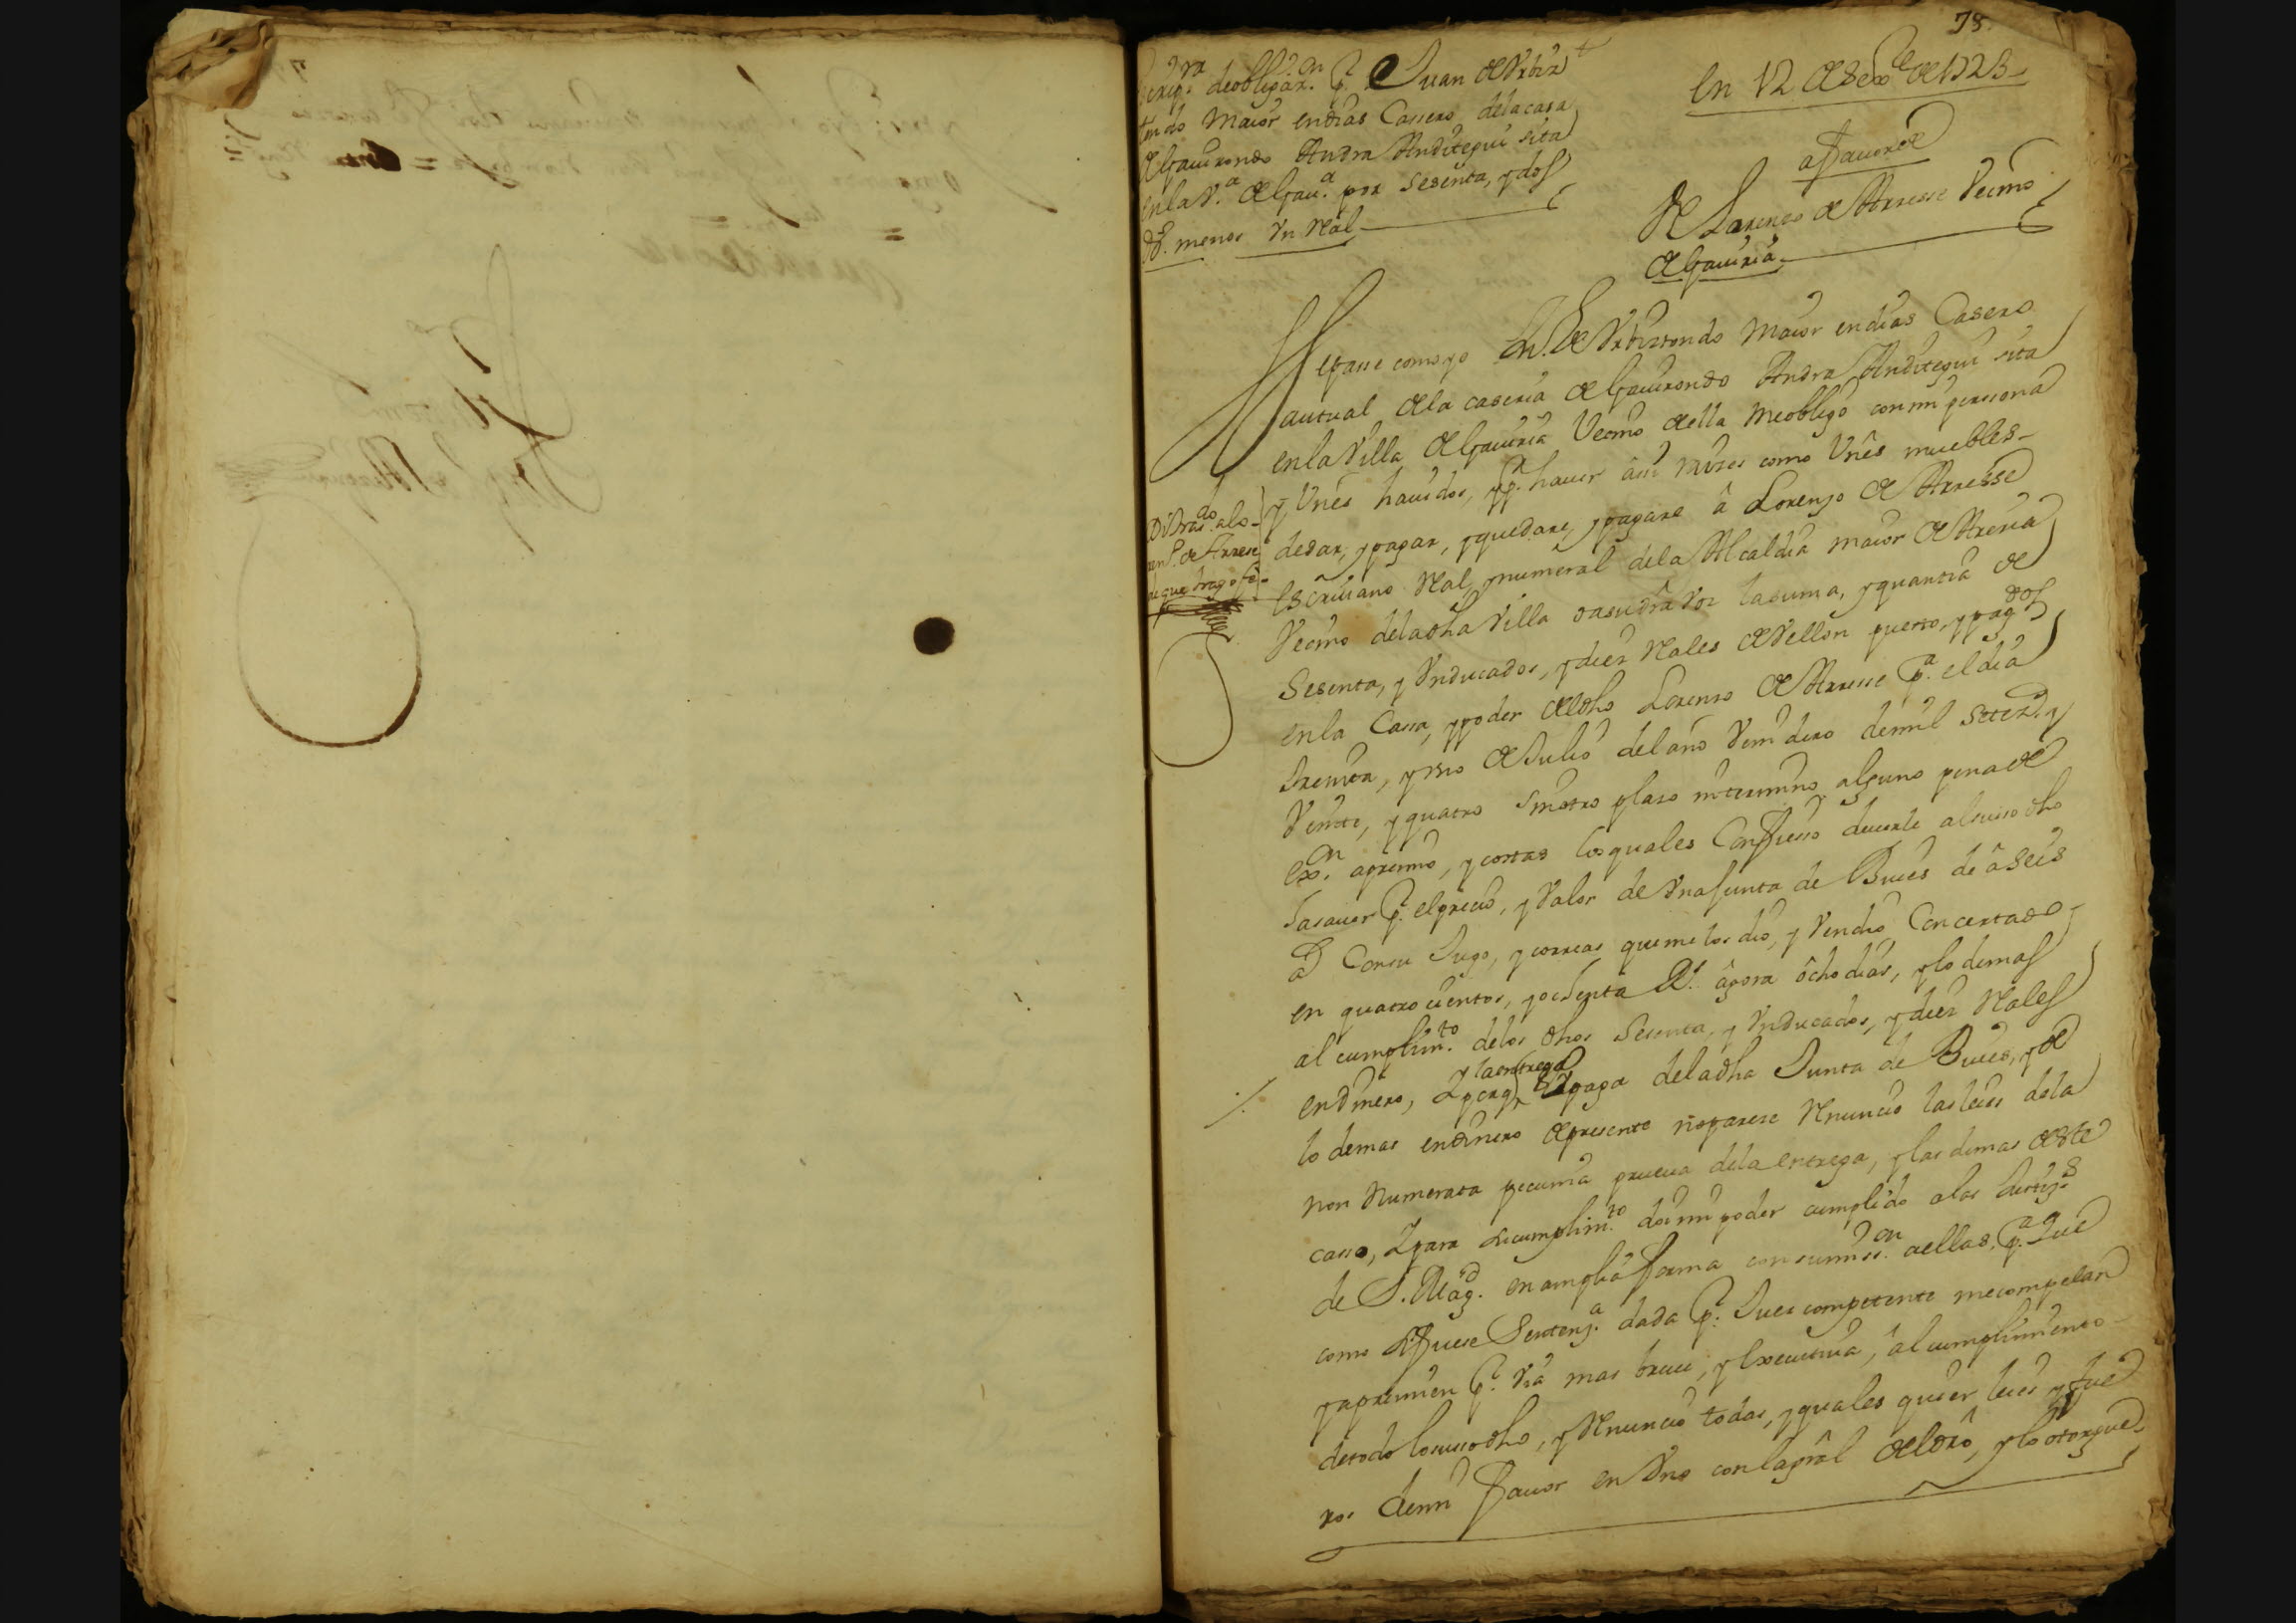 78
Scrip.ra de obligaz.on p.r Juan de Vrbiz
tondo maior en dias Cassero de la casa
de Gauirondo Andra Anditegui sita
en la V.a de Gau.a por sesenta, y dos
ds. menos Vn Real
En 12 de Sep.re de 1723
a fauor de
de Lorenzo de Arresse Vecino
de Gauiria
Sepasse como yo Jn. de Vrbiztondo maior en dias Casero
autual de la caseria de Gauirondo Andra Anditegui sita
en la Villa de Gauiria Vecino de ella me obligo con mi persona
y Vnes hauidos, y p.r hauer asi raizes como Vnes muebles
de dar, y pagar, y que dare, y pagare â Lorenzo de Arresse
Escriuano Real, y numeral de la Alcaldia maior de Areria
Vecino de la dha Villa o a su dra Voz la suma, y quantia de
Sesenta, y Vn ducados, y diez Reales de Vellon puesto, y pagdos
en la Cassa, y poder del dho Lorenzo de Arresse p.a el dia
treinta, y vno de Julio del año Venidero de mil Setez.s y
Veinte, y quatro sin otro plaso ni termino alguno pena de
ex.on apremio, y costas los quales Confiesso deuerle al suso dho
a sauer p.r el precio, y Valor de Vna Junta de Bueis de â seis
as Con su Jugo, y correas que me los dio, y Vendio Concertado
en quatro cientos, y ochenta Rs. agora ôcho dias, y lo demas
al cumplim.to de los dhos Sesenta, y Vn ducados, y diez Reales
en dinero, Y porq y la entrega paga de la dha Junta de Bueis, y de
lo demas en dinero de presente no parese Renuncio las leies de la
non Numerata pecunia prueua de la entrega, y las demas de este
casso, Y para su cumplim.to doi mi poder cumplido a las Justiz.s
de S. Mag.d en amplia forma con sumiss.on a ellas, p.a que
como si fuese Sentenz.a dada p.r Juez competente me compelan
y apremien p.r Via mas breue, y Executiua, âl cumplimiento
de todo lo suso dho, y Renuncio todas, y quales quier leies y fue
ros de mi fauor en Vno con la gral del dro, y lo otorgue
Di tras.do a lo
ren.o de Arrese
de que hago fe